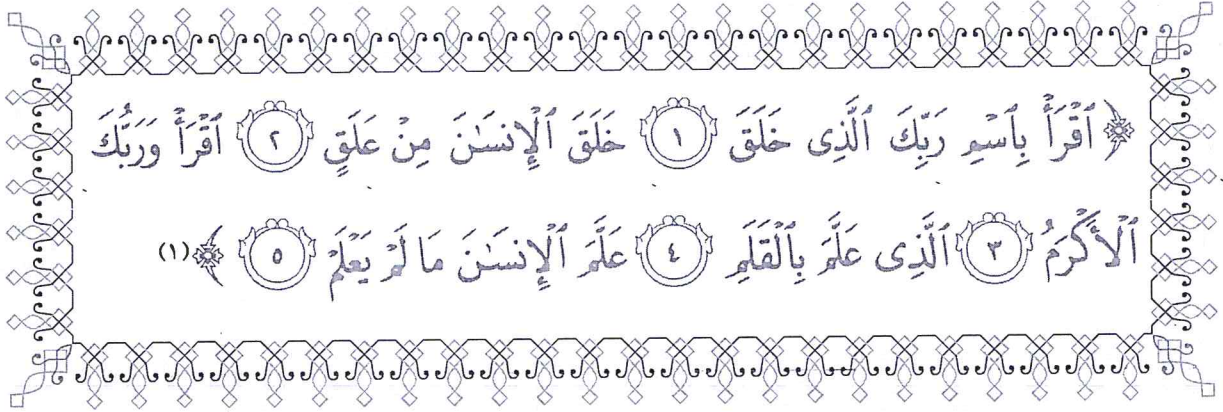 ﴿ ٱقۡرَأۡ بِٱسۡمِ رَبِّكَ ٱلَّذِى خَلَقَ ١ خَلَقَ ٱلۡإِنسَٰنَ مِنۡ عَلَقٍ ٢ ٱقۡرَأۡ وَرَبُّكَ
ٱلۡأَكۡرَمُ ٣ ٱلَّذِى عَلَّمَ بِٱلۡقَلَمِ ٤ عَلَّمَ ٱلۡإِنسَٰنَ مَا لَمۡ يَعۡلَمۡ ٥ ﴾(١)